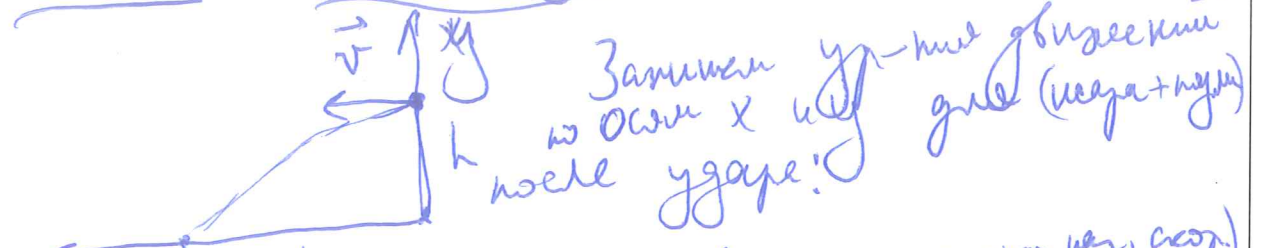 v y
Запишем ур-ния движения
h по осям x и y для (шара+пули)
после удара:
нач. скор.)